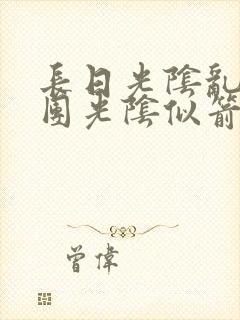 長日光陰亂
團光陰似箭
曾偉